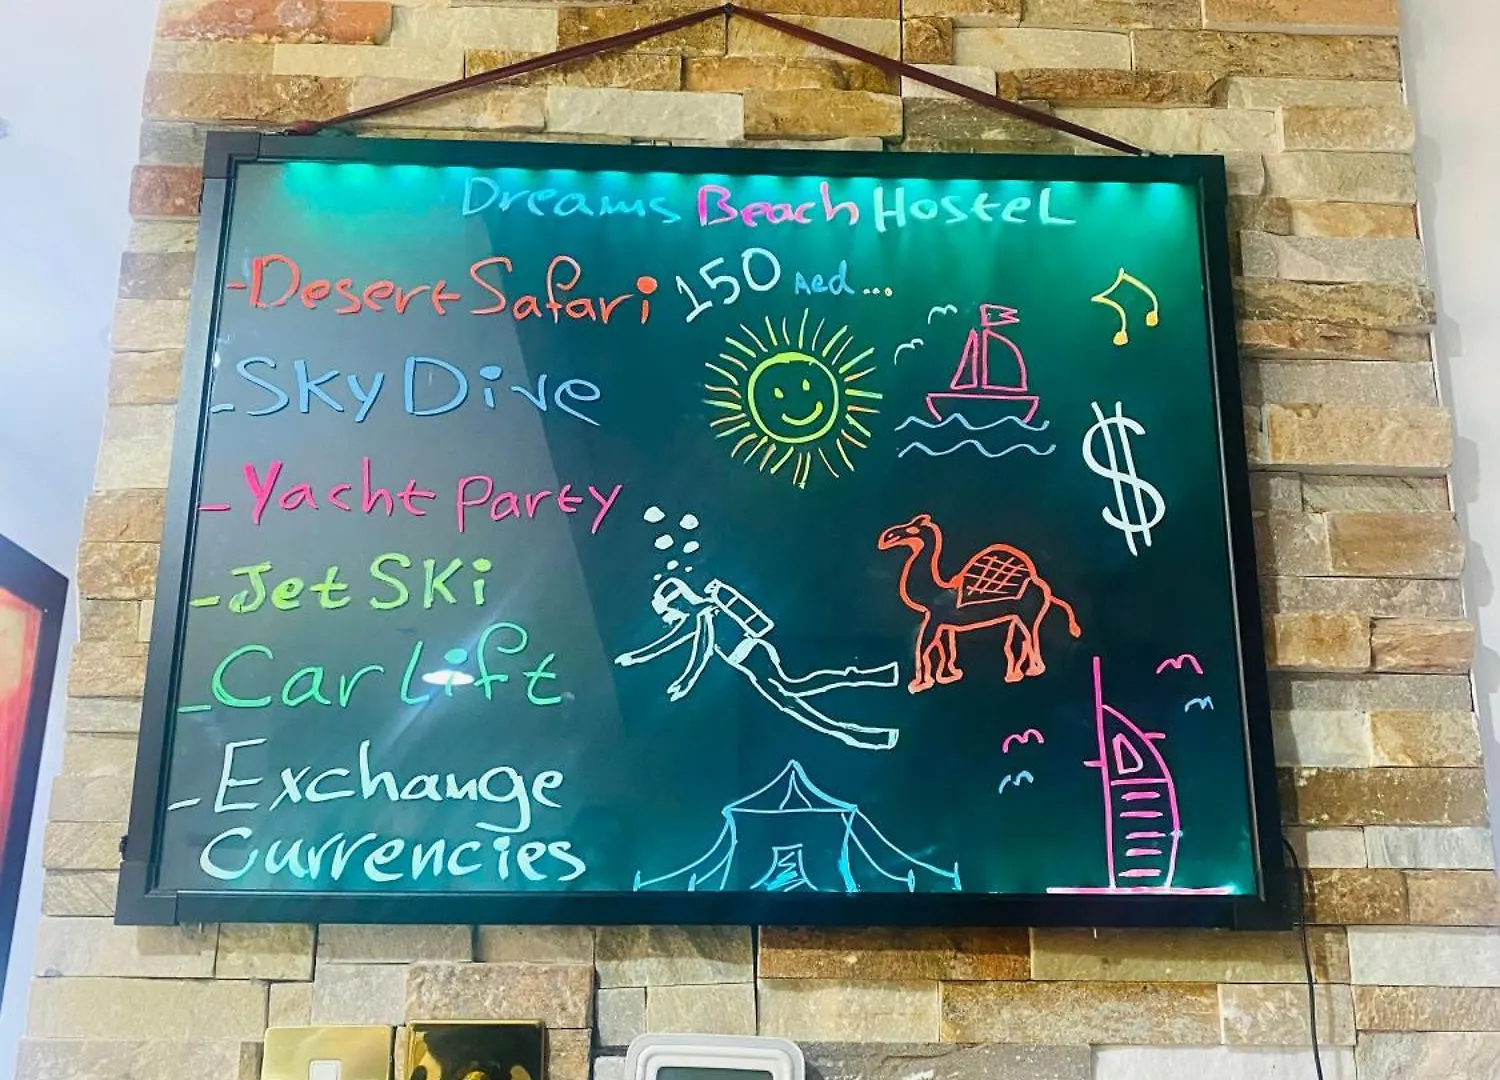 Dreams Beach Hostel
-Desert Safari 150 Aed...
-Sky Dive
-Yacht Party
-Jet Ski
-Car Lift
-Exchange
Currencies
$